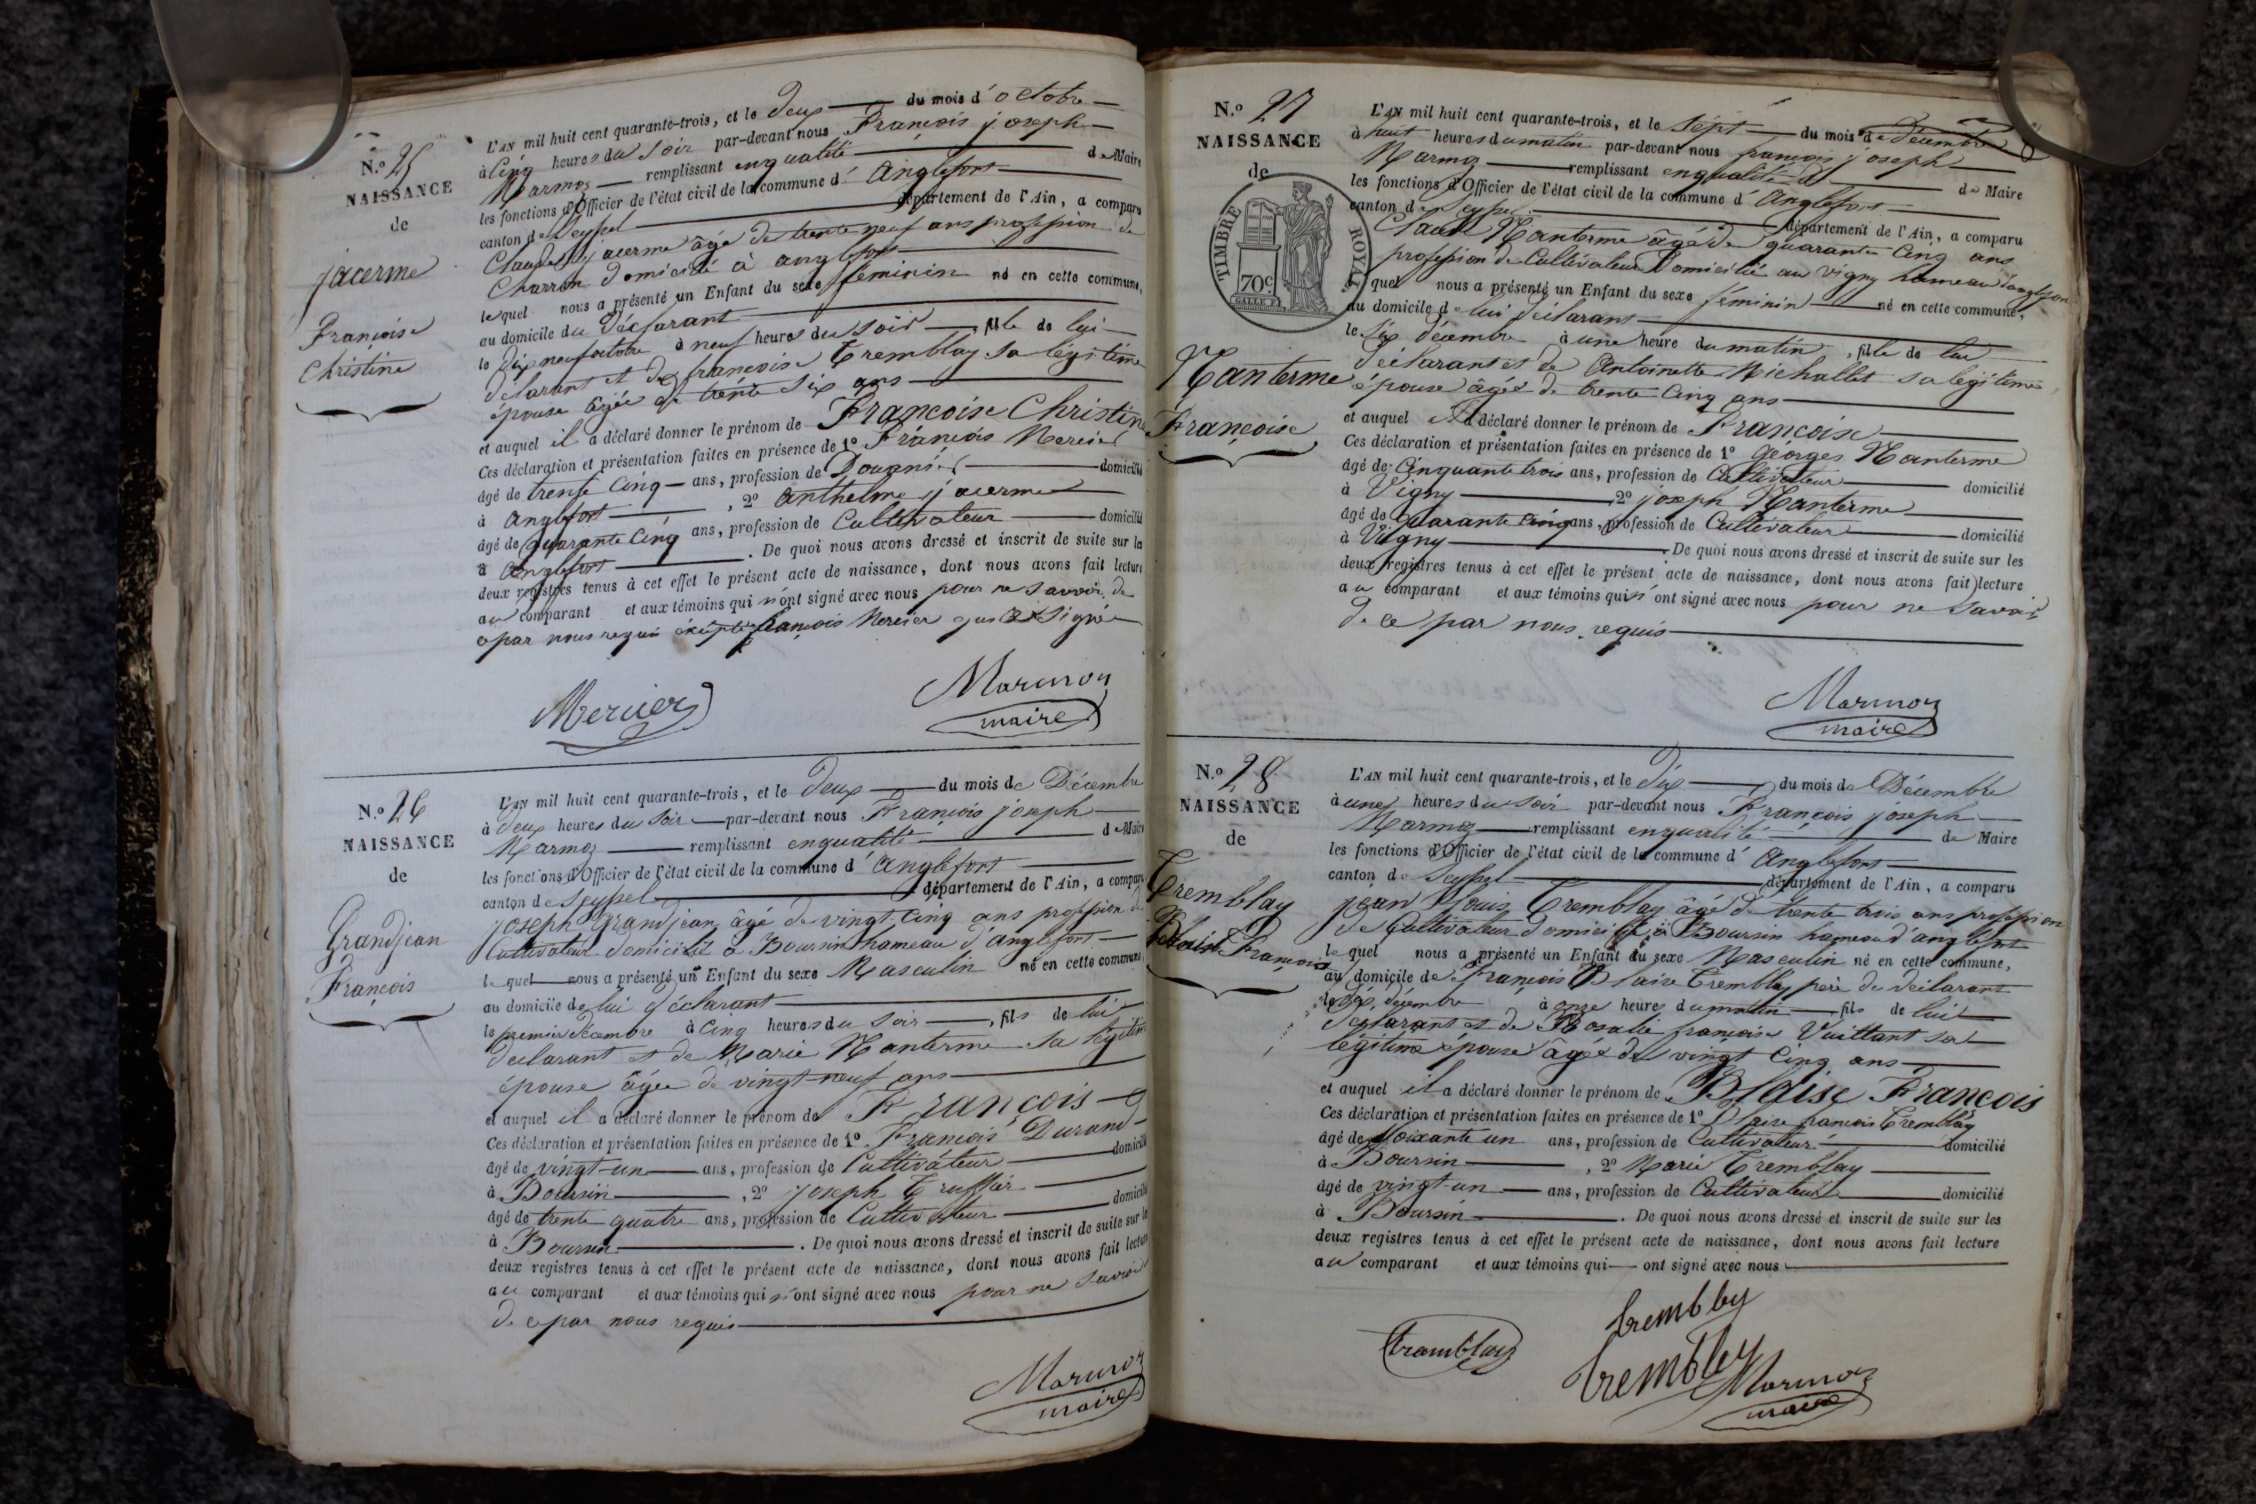 N.º 25
NAISSANCE
de
jacerme
Françoise
Christine
L'AN mil huit cent quarante-trois, et le deux du mois d'octobre
à Cinq heures du soir par-devant nous François joseph
Marmoz remplissant en qualité de Maire
les fonctions d'Officier de l'état civil de la commune d'anglefort
canton de Seyssel département de l'Ain, a comparu
Claude jacerme âgé de trente neuf ans profession de
Charron domicilié à anglefort
lequel nous a présenté un Enfant du sexe féminin né en cette commune,
au domicile du déclarant
le dix neuf octobre à neuf heures du soir, fille de lui
déclarant et de françoise Tremblay sa légitime
épouse âgée de trente six ans
et auquel il a déclaré donner le prénom de Françoise Christine
Ces déclaration et présentation faites en présence de 1º François Mercier
âgé de trente Cinq ans, profession de Douanier domicilié
à anglefort, 2º anthelme jacerme
âgé de quarante Cinq ans, profession de Cultivateur domicilié
à anglefort. De quoi nous avons dressé et inscrit de suite sur les
deux registres tenus à cet effet le présent acte de naissance, dont nous avons fait lecture
au comparant et aux témoins qui n'ont signé avec nous pour ne savoir de
ce par nous requis excepté françois Mercier qui a signé
Mercier
Marmoz
maire
N.º 26
NAISSANCE
de
Grandjean
François
L'AN mil huit cent quarante-trois, et le deux du mois de Décembre
à deux heures du soir par-devant nous François joseph
Marmoz remplissant en qualité de Maire
les fonctions d'Officier de l'état civil de la commune d'anglefort
canton de Seyssel département de l'Ain, a comparu
joseph Grandjean âgé de vingt Cinq ans profession de
Cultivateur domicilié à Boursin hameau d'anglefort
lequel nous a présenté un Enfant du sexe Masculin né en cette commune,
au domicile de lui déclarant
le premier décembre à Cinq heures du soir, fils de lui
déclarant et de Marie Manterme sa légitime
épouse âgée de vingt-neuf ans
et auquel il a déclaré donner le prénom de François
Ces déclaration et présentation faites en présence de 1º François Durand
âgé de vingt-un ans, profession de Cultivateur domicilié
à Boursin, 2º joseph Truffier
âgé de trente quatre ans, profession de Cultivateur domicilié
à Boursin. De quoi nous avons dressé et inscrit de suite sur les
deux registres tenus à cet effet le présent acte de naissance, dont nous avons fait lecture
au comparant et aux témoins qui n'ont signé avec nous pour ne savoir
de ce par nous requis
Marmoz
maire
N.º 27
NAISSANCE
de
TIMBRE ROYAL
70 c.
Manterme
Françoise
L'AN mil huit cent quarante-trois, et le sept du mois de décembre
à huit heures du matin par-devant nous françois joseph
Marmoz remplissant en qualité de Maire
les fonctions d'Officier de l'état civil de la commune d'anglefort
canton de Seyssel département de l'Ain, a comparu
Claude Manterme âgé de quarante Cinq ans
profession de Cultivateur Domicilié au vigny hameau d'anglefort
quel nous a présenté un Enfant du sexe féminin né en cette commune,
au domicile de lui déclarant
le six décembre à une heure du matin, fille de lui
déclarant et de Antoinette Michallet sa légitime
épouse âgée de trente Cinq ans
et auquel il a déclaré donner le prénom de Françoise
Ces déclaration et présentation faites en présence de 1º Georges Manterme
âgé de Cinquante trois ans, profession de Cultivateur domicilié
à Vigny 2º joseph Manterme
âgé de quarante Cinq ans, profession de Cultivateur domicilié
à Vigny. De quoi nous avons dressé et inscrit de suite sur les
deux registres tenus à cet effet le présent acte de naissance, dont nous avons fait lecture
au comparant et aux témoins qui n'ont signé avec nous pour ne savoir
de ce par nous requis
Marmoz
maire
N.º 28
NAISSANCE
de
Tremblay
Blaise François
L'AN mil huit cent quarante-trois, et le dix du mois de Décembre
à une heures du soir par-devant nous François joseph
Marmoz remplissant en qualité de Maire
les fonctions d'Officier de l'état civil de la commune d'anglefort
canton de Seyssel département de l'Ain, a comparu
jean Louis Tremblay âgé de trente trois ans profession
de Cultivateur domicilié à Boursin hameau d'anglefort
le quel nous a présenté un Enfant du sexe Masculin né en cette commune,
au domicile de François Blaise Tremblay père du déclarant
le dix décembre à onze heures du matin, fils de lui
déclarant et de Rosalie françoise Vuittant sa
légitime épouse âgée de vingt Cinq ans
et auquel il a déclaré donner le prénom de Blaise François
Ces déclaration et présentation faites en présence de 1º Blaise francois Tremblay
âgé de soixante un ans, profession de Cultivateur domicilié
à Boursin, 2º Marie Tremblay
âgé de vingt-un ans, profession de Cultivateur domicilié
à Boursin. De quoi nous avons dressé et inscrit de suite sur les
deux registres tenus à cet effet le présent acte de naissance, dont nous avons fait lecture
au comparant et aux témoins qui ont signé avec nous
trembley
tramblay
trembley
Marmoz
maire